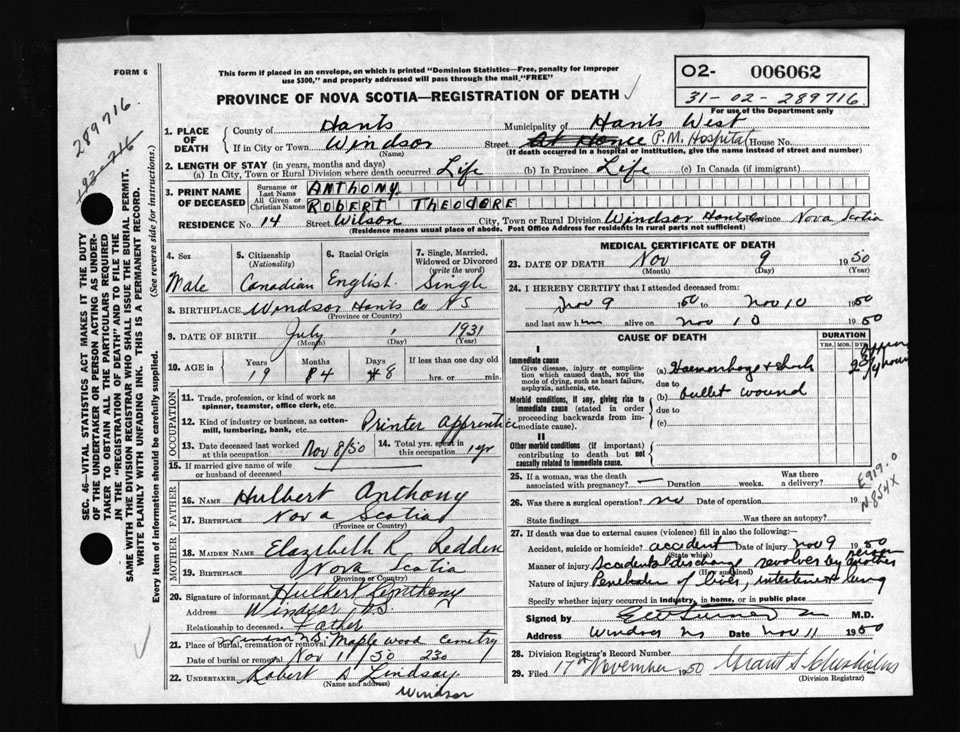 FORM 6
This form if placed in an envelope, on which is printed "Dominion Statistics—Free, penalty for improper
use $300," and properly addressed will pass through the mail "FREE"
O2- 006062
31-02-289716
For use of the Department only
289716.
PROVINCE OF NOVA SCOTIA—REGISTRATION OF DEATH
1. PLACE OF DEATH
County of Hants
Municipality of Hants West
If in City or Town Windsor (Name)
Street at Home P.M. Hospital House No.
(If death occurred in a hospital or institution, give the name instead of street and number)
2. LENGTH OF STAY (in years, months and days)
(a) In City, Town or Rural Division where death occurred Life (b) In Province Life (c) In Canada (if immigrant)
3. PRINT NAME OF DECEASED
Surname or Last Name ANTHONY
All Given or Christian Names ROBERT THEODORE
RESIDENCE No. 14 Street Wilson City, Town or Rural Division Windsor Hants Co Province Nova Scotia
(Residence means usual place of abode. Post Office Address for residents in rural parts not sufficient)
SEC. 46—VITAL STATISTICS ACT MAKES IT THE DUTY
OF THE UNDERTAKER OR PERSON ACTING AS UNDER-
TAKER TO OBTAIN ALL THE PARTICULARS REQUIRED
IN THE "REGISTRATION OF DEATH" AND TO FILE THE
SAME WITH THE DIVISION REGISTRAR WHO SHALL ISSUE THE BURIAL PERMIT.
WRITE PLAINLY WITH UNFADING INK. THIS IS A PERMANENT RECORD.
Every item of information should be carefully supplied. (See reverse side for instructions.)
4. Sex
Male
5. Citizenship (Nationality)
Canadian
6. Racial Origin
English
7. Single, Married, Widowed or Divorced (write the word)
Single
8. BIRTHPLACE Windsor Hants Co NS
(Province or Country)
9. DATE OF BIRTH July 1 1931
(Month) (Day) (Year)
10. AGE in Years 19 Months 4 Days 8
If less than one day old
hrs. or min.
OCCUPATION
11. Trade, profession, or kind of work as
spinner, teamster, office clerk, etc.
12. Kind of industry or business, as cotton-
mill, lumbering, bank, etc. Printer Apprentice
13. Date deceased last worked
at this occupation Nov 8/50
14. Total yrs. spent
in this occupation 1 yr
15. If married give name of wife
or husband of deceased —
FATHER
16. NAME Hulbert Anthony
17. BIRTHPLACE Nova Scotia
(Province or Country)
MOTHER
18. MAIDEN NAME Elazibeth R Redden
19. BIRTHPLACE Nova Scotia
(Province or Country)
20. Signature of informant Hulbert Anthony
Address Windsor N.S.
Relationship to deceased Father
Windsor N.S.
21. Place of burial, cremation or removal Maplewood Cemetry
Date of burial or removal Nov 11/50 230
22. UNDERTAKER Robert D Lindsay
(Name and address)
Windsor
MEDICAL CERTIFICATE OF DEATH
23. DATE OF DEATH Nov 9 1950
(Month) (Day) (Year)
24. I HEREBY CERTIFY that I attended deceased from:
Nov 9 1950 to Nov 10 1950
and last saw him alive on Nov 10 1950
CAUSE OF DEATH
DURATION
YRS. MOS. DYS.
I
Immediate cause
Give disease, injury or complica-
tion which caused death, NOT the
mode of dying, such as heart failure,
asphyxia, asthenia, etc.
(a) Haemorrhage & shock
due to
Morbid conditions, if any, giving rise to
immediate cause (stated in order
proceeding backwards from im-
mediate cause).
(b) bullet wound
due to
(c)
II
Other morbid conditions (if important)
contributing to death but not
causally related to immediate cause.
25. If a woman, was the death
associated with pregnancy? — Duration weeks. Was there
a delivery?
E919.0
N854X
26. Was there a surgical operation? no Date of operation 19
State findings Was there an autopsy?
27. If death was due to external causes (violence) fill in also the following:
Accident, suicide or homicide? accident Date of injury Nov 9 1950
(State which)
Manner of injury Accidental discharge revolver by another person
(How sustained)
Nature of injury Penetration of liver, intestine & lung
Specify whether injury occurred in industry, in home, or in public place
Signed by M.D.
Address Windsor NS Date Nov 11 1950
28. Division Registrar's Record Number
29. Filed 17th November 1950
(Division Registrar)